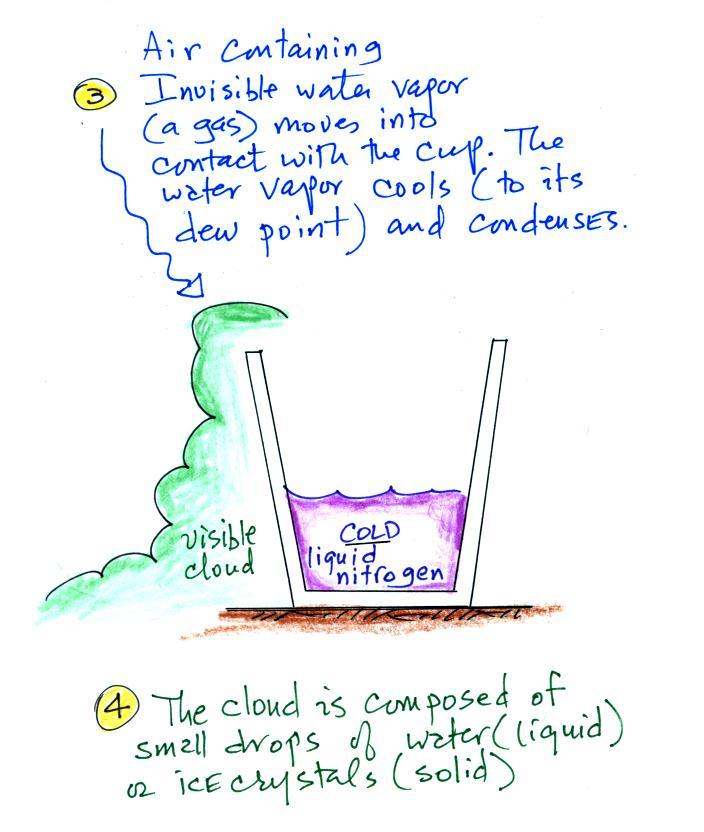 Air containing
3 Invisible water vapor
(a gas) moves into
contact with the cup. The
water vapor cools (to its
dew point) and condenses.
visible
cloud
COLD
liquid
nitrogen
4 The cloud is composed of
small drops of water (liquid)
or ice crystals (solid)